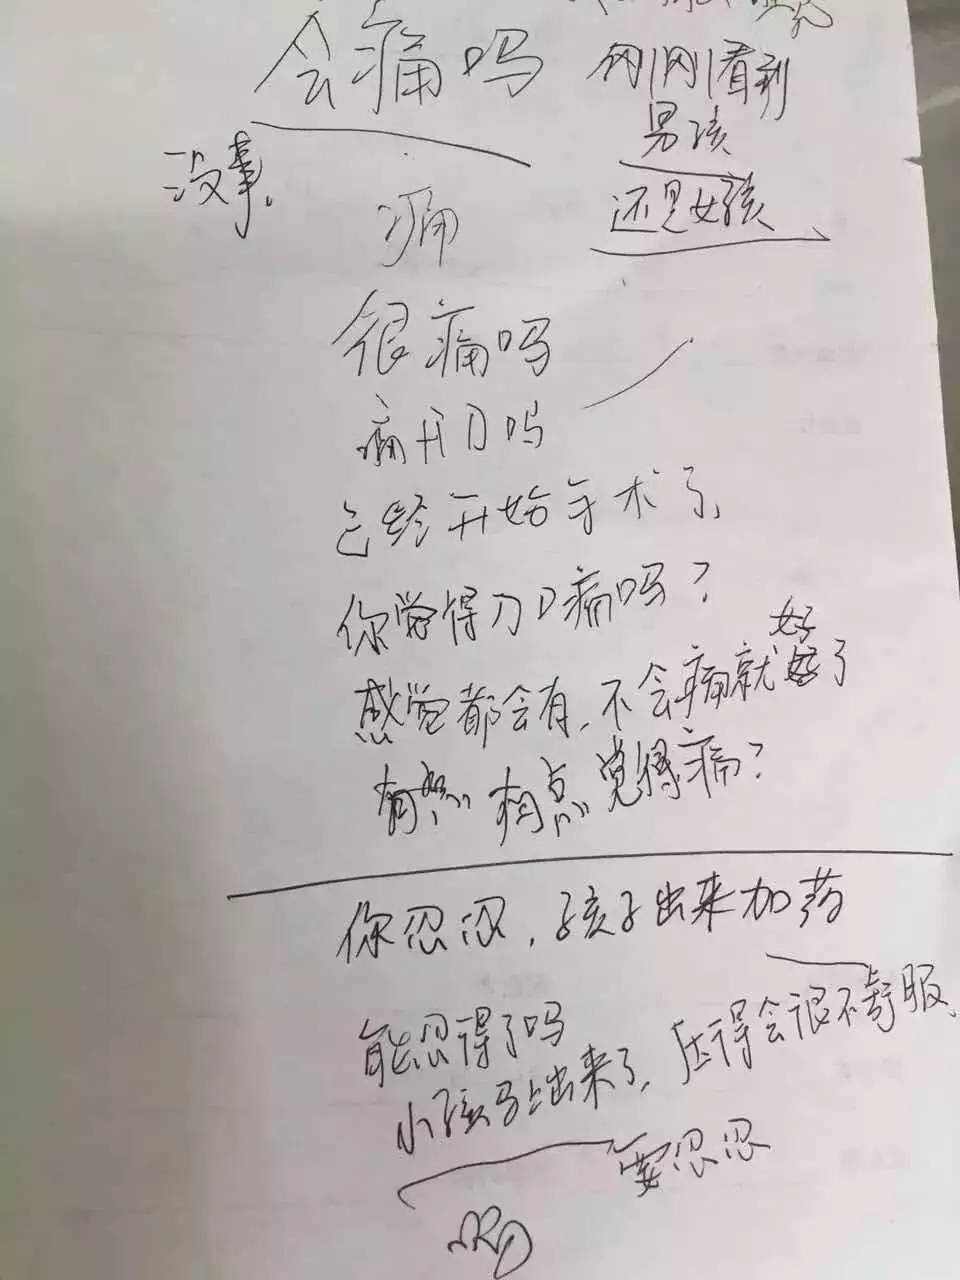 会痛吗
刚刚看到
男孩
还是女孩
没事.
痛
很痛吗
痛开刀吗
已经开始手术了,
你觉得刀口痛吗？
感觉都会有,不会痛就好了
有点 有点觉得痛？
你忍忍,孩子出来加药
能忍得了吗
小孩马上出来了,压得会很不舒服、
要忍忍